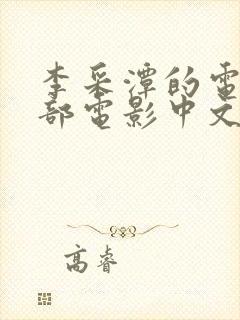 李采潭的電
部電影中文
高睿